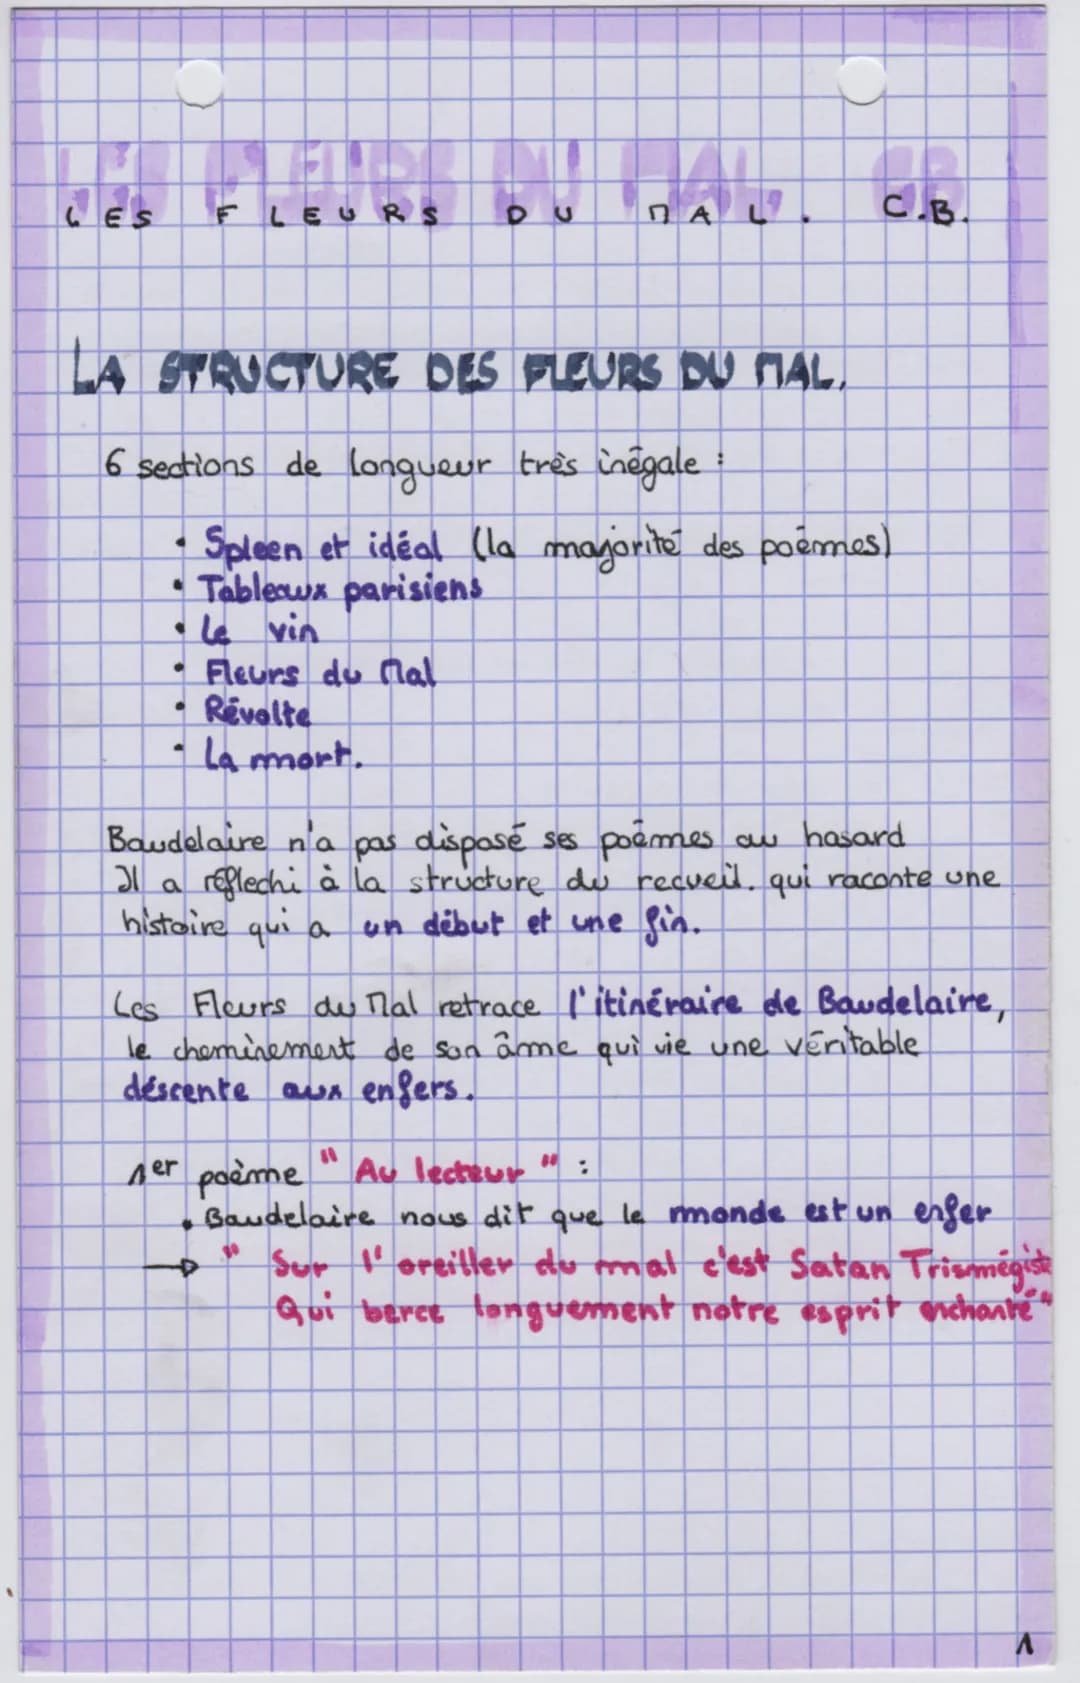 LES FLEURS DU MAL. CB
LES FLEURS DU MAL. C.B.
LA STRUCTURE DES FLEURS DU MAL.
6 sections de longueur très inégale :
• Spleen et idéal (la majorité des poèmes)
• Tableaux parisiens
• Le vin
• Fleurs du Mal
• Révolte
• La mort.
Baudelaire n'a pas disposé ses poèmes au hasard
Il a réflechi à la structure du recueil. qui raconte une
histoire qui a un début et une fin.
Les Fleurs du Mal retrace l'itinéraire de Baudelaire,
le cheminement de son âme qui vie une véritable
déscente aux enfers.
1er poème " Au lecteur " :
• Baudelaire nous dit que le monde est un enfer
→ " Sur l'oreiller du mal c'est Satan Trismégiste
Qui berce longuement notre esprit enchanté"
1